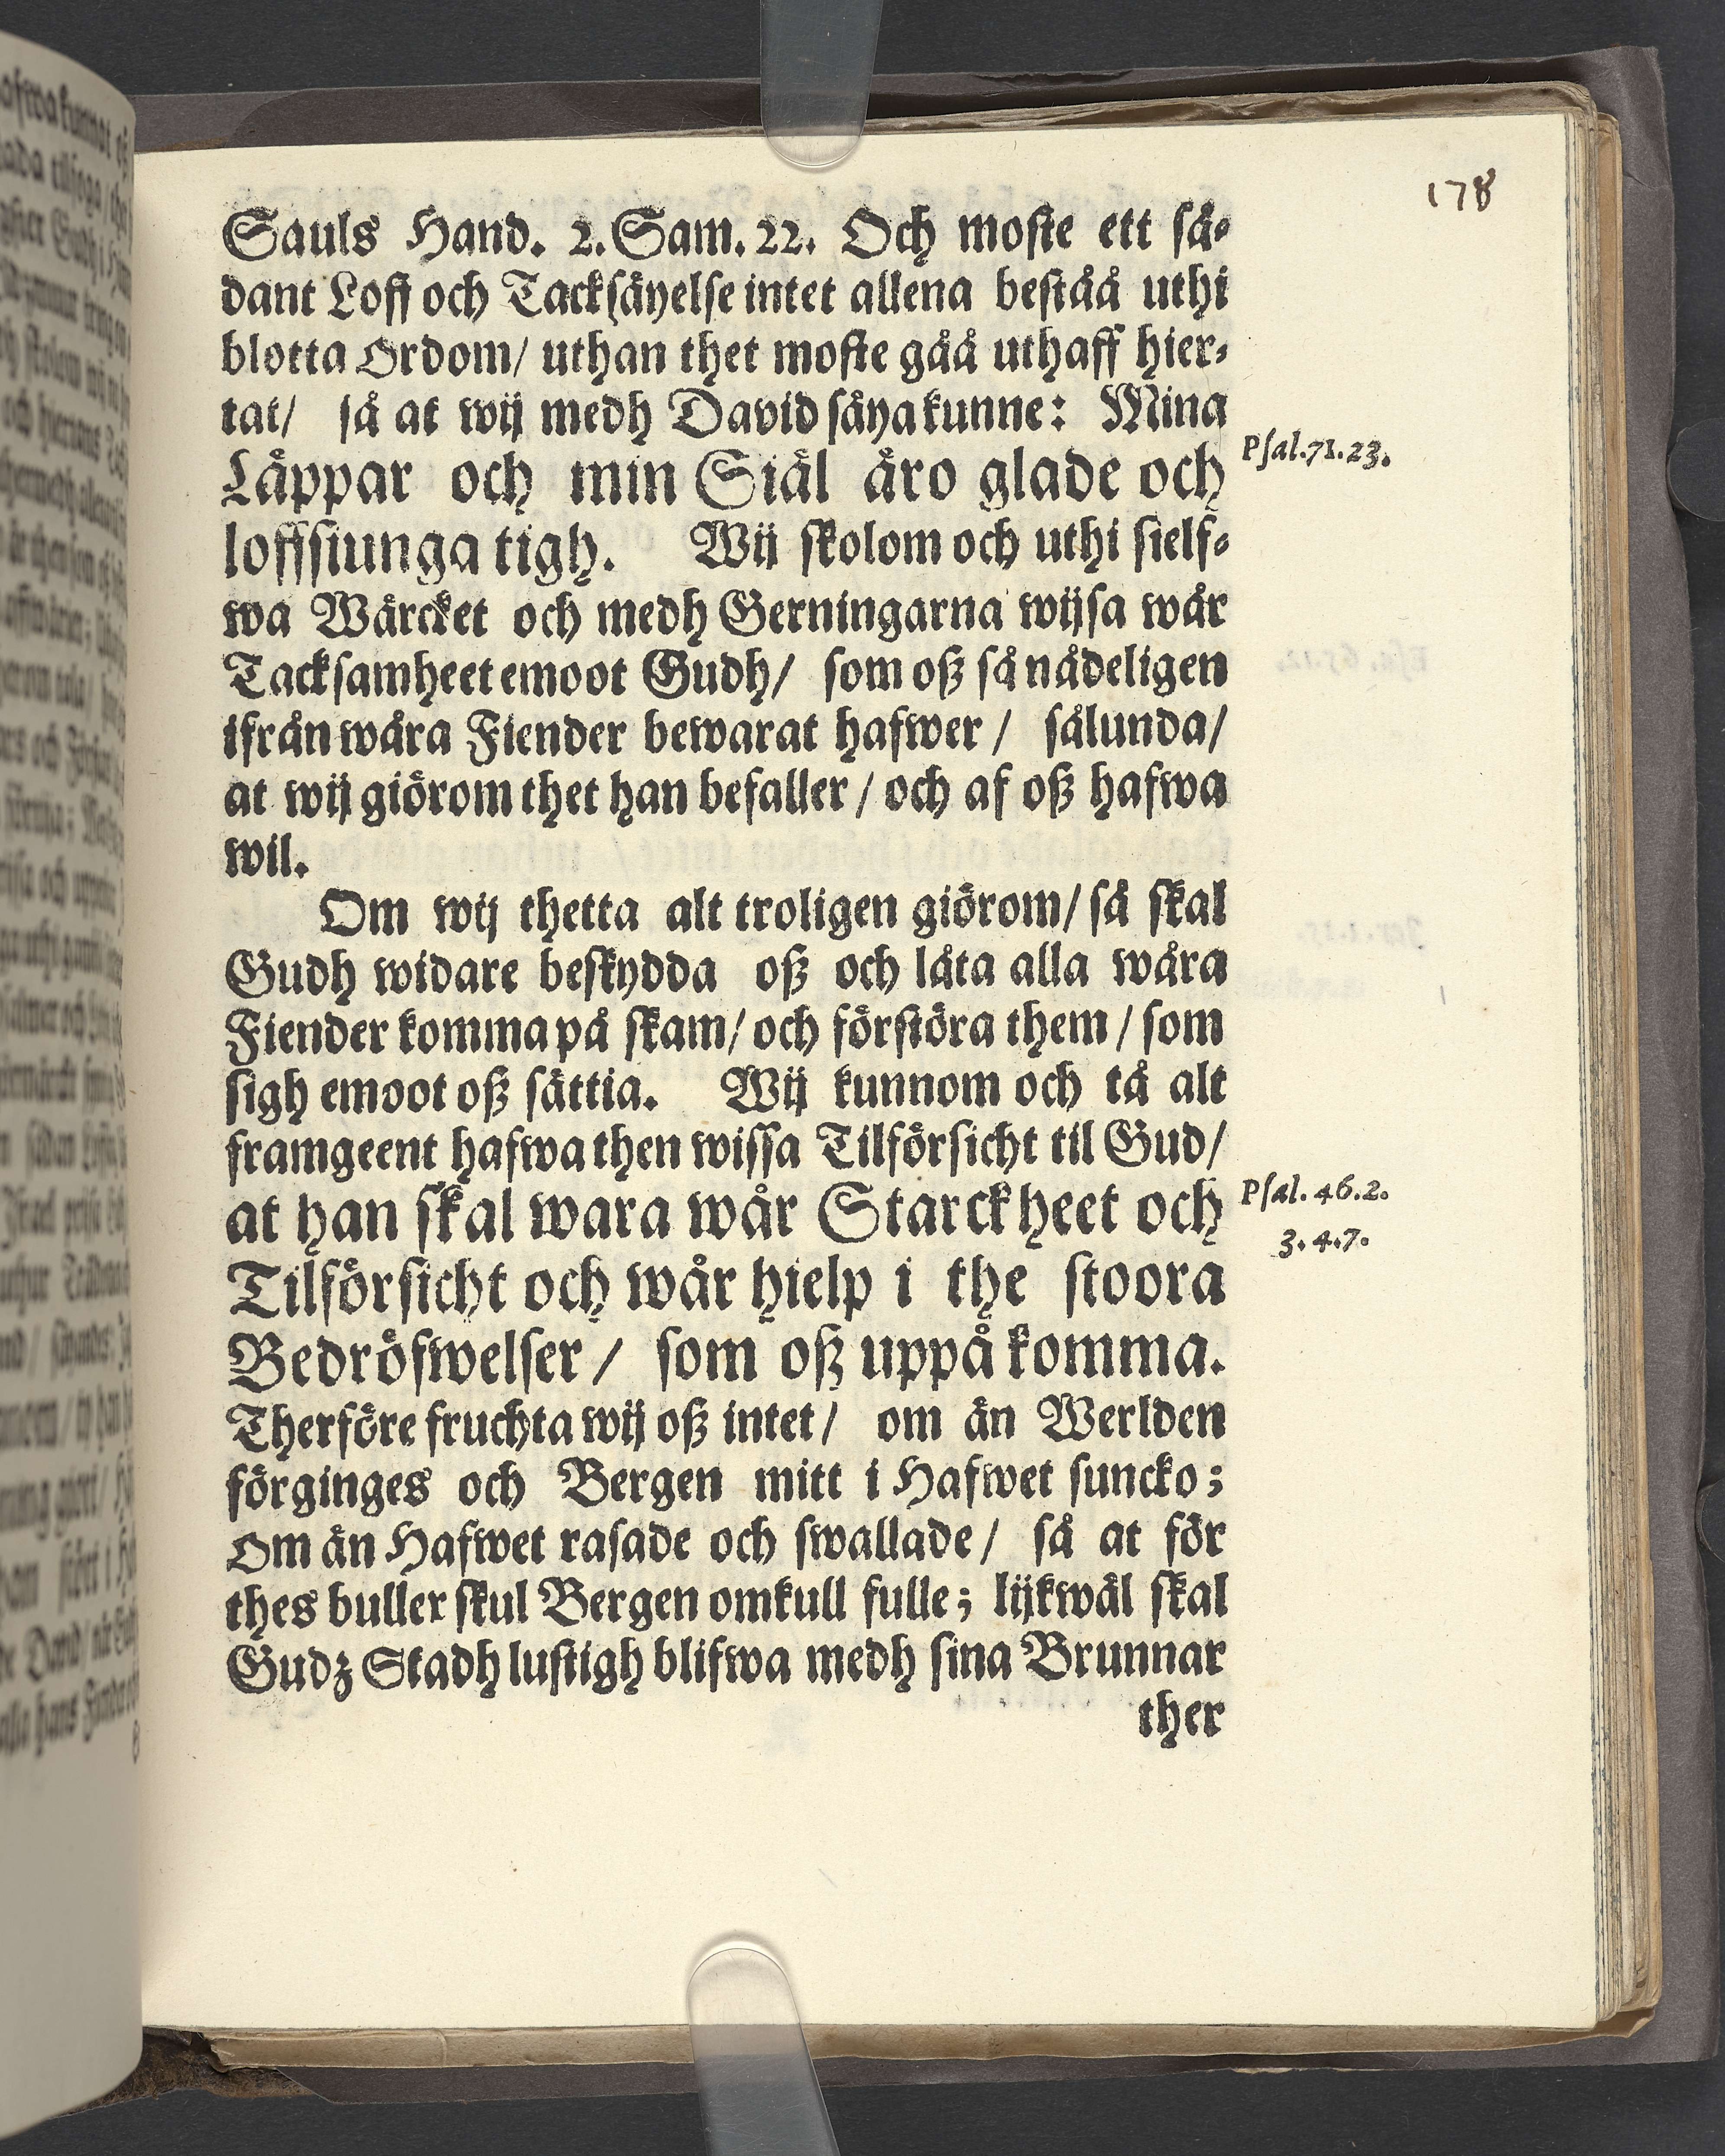 178
Sauls Hand. 2. Sam. 22. Och moste ett så-
dant Loff och Tacksäyelse intet allena beståå uthi
blotta Ordom/ uthan thet moste gåå uthaff hier-
tat/ så at wij medh David säya kunne: Mina
Läppar och min Siäl äro glade och
loffsiunga tigh. Wij skolom och uthi sielf-
wa Wärcket och medh Gerningarna wijsa wår
Tacksamheet emoot Gudh/ som oß så nådeligen
ifrån wåra Fiender bewarat hafwer / sålunda/
at wij giörom thet han befaller / och af oß hafwa
wil.
Om wij thetta alt troligen giörom/ så skal
Gudh widare beskydda oß och låta alla wåra
Fiender komma på skam/ och förstöra them / som
sigh emoot oß sättia. Wij kunnom och tå alt
framgeent hafwa then wissa Tilförsicht til Gud/
at han skal wara wår Starckheet och
Tilförsicht och wår hielp i the stoora
Bedröfwelser / som oß uppå komma.
Therföre fruchta wij oß intet / om än Werlden
förginges och Bergen mitt i Hafwet suncko;
Om än Hafwet rasade och swallade / så at för
thes buller skul Bergen omkull fulle; lijkwäl skal
Gudz Stadh lustigh blifwa medh sina Brunnar
ther
Psal. 71. 23.
Psal. 46. 2.
3. 4. 7.